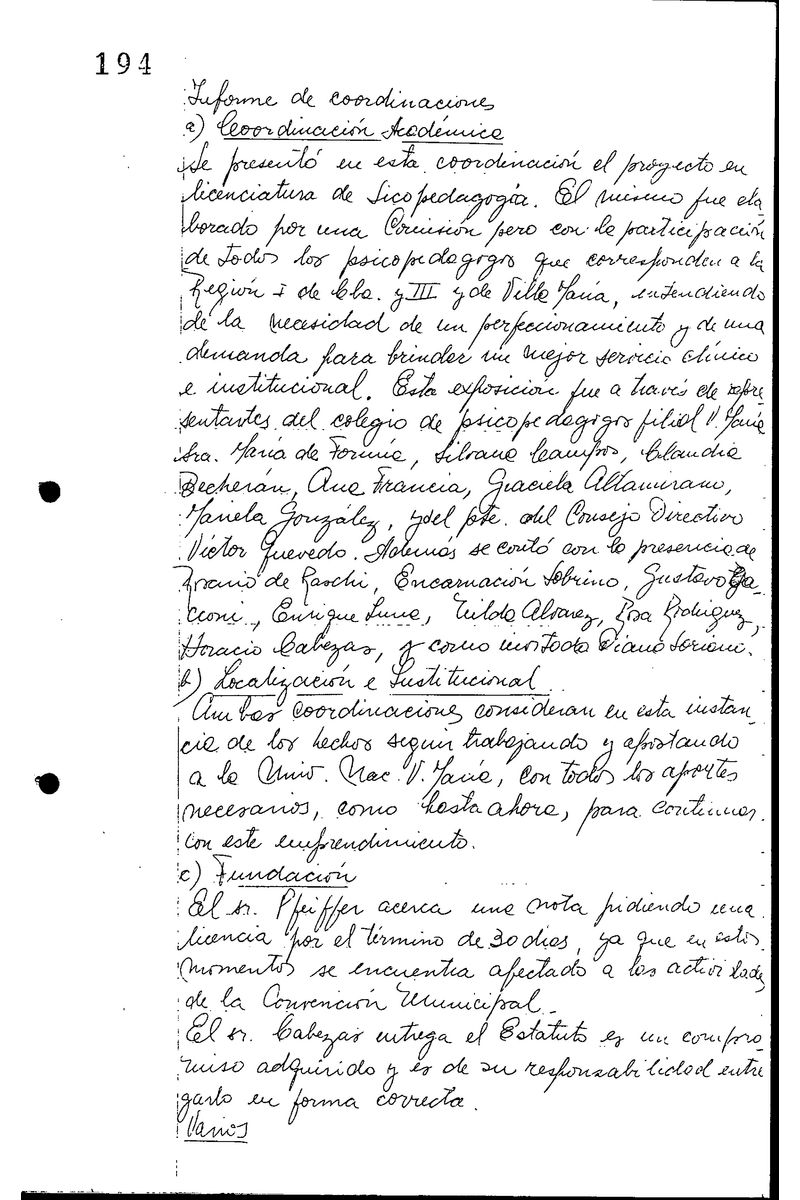 194
Informe de coordinaciones
a) Coordinación Académica
Se presentó en esta coordinación el proyecto en
licenciatura de Sicopedagogía. El mismo fue ela-
borado por una Comisión pero con la participación
de todos los psicopedagogos que corresponden a la
Región I de Cba. y III y de Villa María, entendiendo
de la necesidad de un perfeccionamiento y de una
demanda para brindar un mejor servicio clínico
e institucional. Esta exposición fue a través de repre-
sentantes del colegio de psicopedagogos filial V. María
Sra. María de Formía, Silvana Campos, Claudia
Becherán, Ana Francia, Graciela Altamirano,
Mariela González, y del pte. del Consejo Directivo
Víctor Quevedo. Además se contó con la presencia de
Rosario de Raschi, Encarnación Sobrino, Gustavo
Enrique Luna, Tilda Alvarez, Rosa Rodriguez,
Horacio Cabezas, y como invitada Diana Soriani.
b) Localización e Institucional
Ambas coordinaciones consideran en esta instan-
cia de los hechos seguir trabajando y apostando
a la Univ. Nac. V. María, con todos los aportes
necesarios, como hasta ahora, para continuar
con este emprendimiento.
c) Fundación
El sr. Pfeiffer acerca una nota pidiendo una
licencia por el término de 30 días, ya que en estos
momentos se encuentra afectado a las actividades
de la Convención Municipal.
El sr. Cabezas entrega el Estatuto es un compro-
miso adquirido y es de su responsabilidad entre
garlo en forma correcta.
Varios